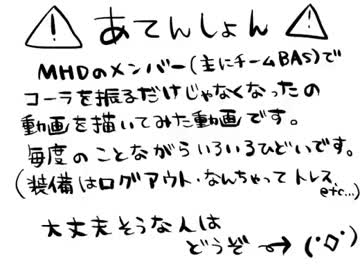 ⚠ あてんしょん ⚠
MHDのメンバー(主にチームBAS)で
コーラを振るだけじゃなくなったの
動画を描いてみた動画です。
毎度のことながらいろいろひどいです。
(装備はログアウト・なんちゃってトレス、etc...)
大丈夫そうな人は
どうぞ→(゜◇゜)